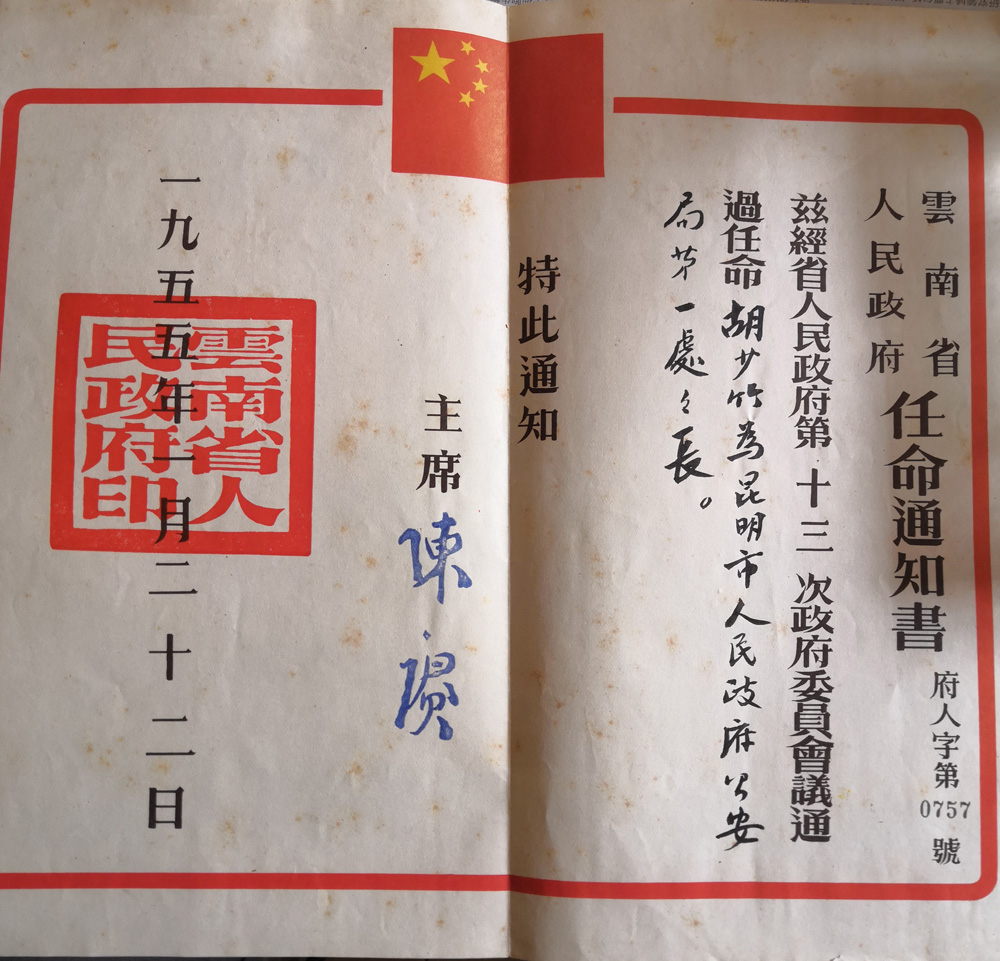 雲南省
人民政府
任命通知書
府人字第0757號
兹經省人民政府第十三次政府委員會議通
過任命胡少竹為昆明市人民政府公安
局第一處々長。
特此通知
主席陳賡
一九五五年一月二十二日
雲南省人
民政府印